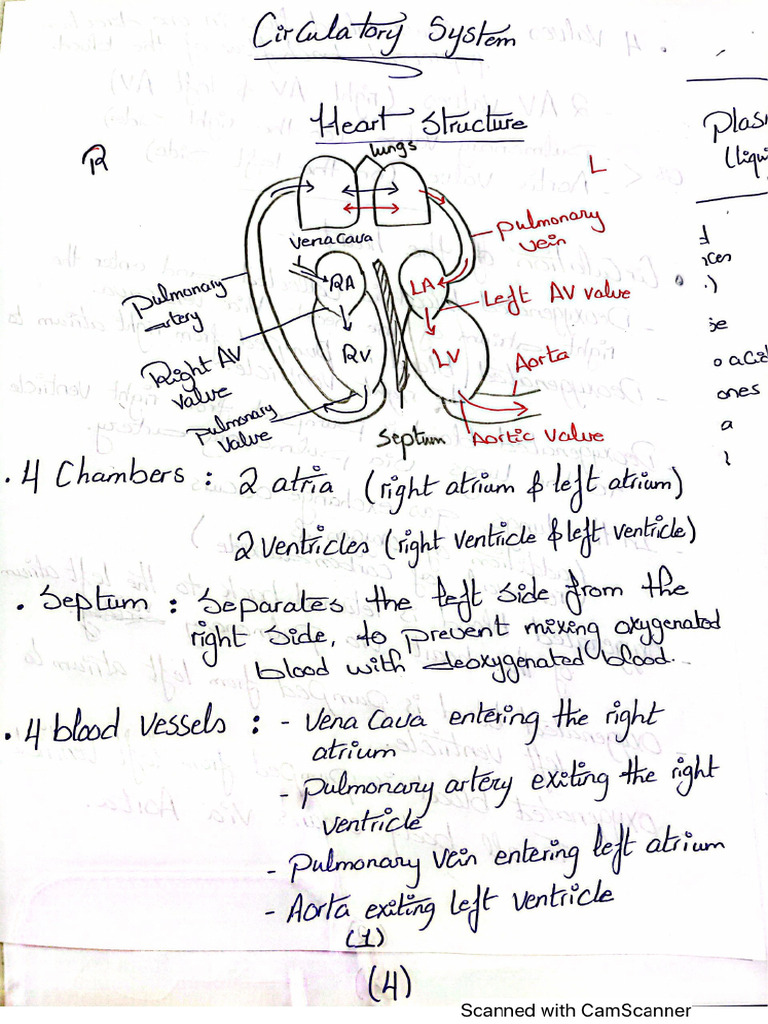 Circulatory System
Heart Structure
R
lungs
L
Plas
(liqui
Pulmonary
vein
Vena Cava
Pulmonary
artery
RA
LA
Left AV valve
Right AV
valve
RV
LV
Aorta
Pulmonary
valve
Septum
Aortic valve
ices
.)
se
o acid
ones
a
. 4 Chambers : 2 atria (right atrium & left atrium)
2 ventricles (right ventricle & left ventricle)
. Septum : Separates the left side from the
right side, to prevent mixing oxygenated
blood with deoxygenated blood.
. 4 blood vessels : - Vena Cava entering the right
atrium
- Pulmonary artery exiting the right
ventricle
- Pulmonary vein entering left atrium
- Aorta exiting left ventricle
(1)
(4)
Scanned with CamScanner